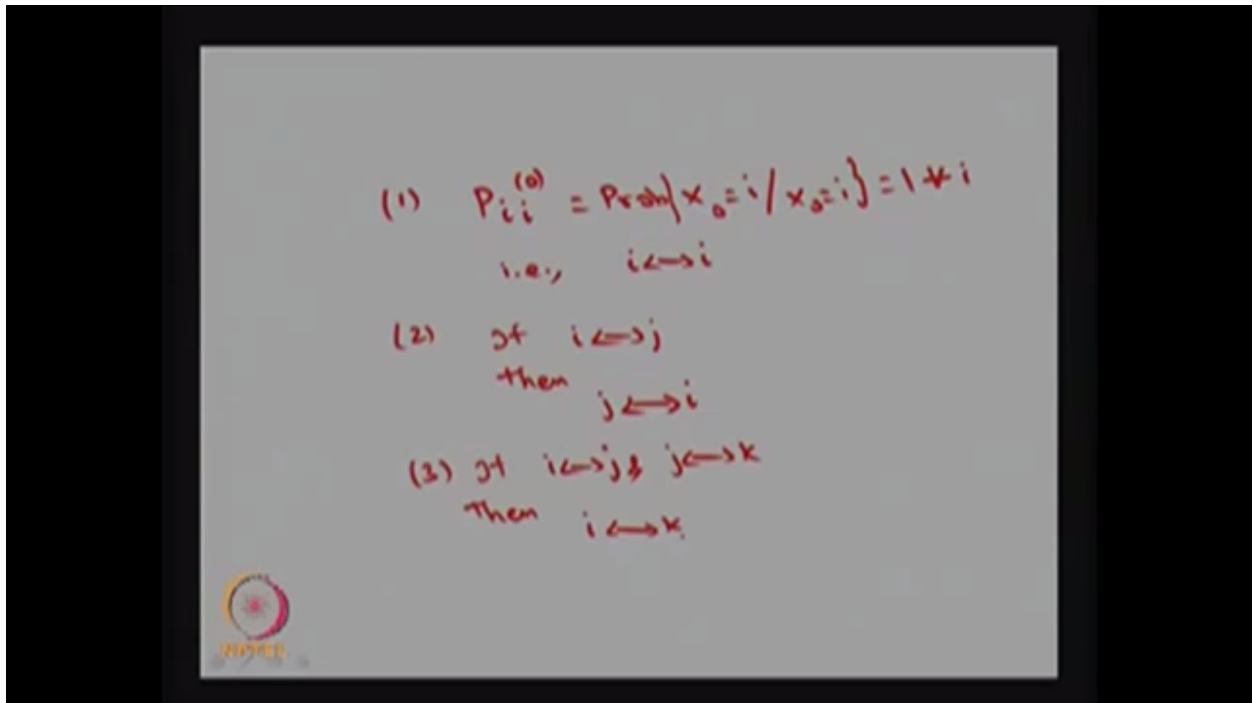 (1) P_{ii}^{(0)} = Prob{X_0=i / X_0=i} = 1 ∀ i
i.e., i<->i
(2) If i<->j
then
j<->i
(3) If i<->j & j<->k
Then i<->k
NPTEL